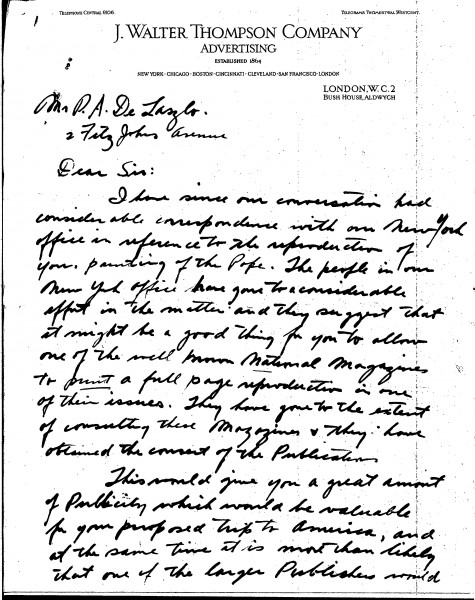 Telephone Central 6106.
Telegrams Thomertwal Westcent.
J. Walter Thompson Company
Advertising
Established 1864
New York · Chicago · Boston · Cincinnati · Cleveland · San Francisco · London
London, W.C. 2
Bush House, Aldwych
Mr P. A. De Laszlo.
2 Fitz Johns Avenue
Dear Sir:
I have since our conversation had
considerable correspondence with our New York
office in reference to the reproduction of
your painting of the Pope. The people in our
New York office have gone to a considerable
effort in the matter and they suggest that
it might be a good thing for you to allow
one of the well known National Magazines
to print a full page reproduction in one
of their issues. They have gone to the extent
of consulting these Magazines & they have
obtained the consent of the Publications
This would give you a great amount
of Publicity which would be valuable
for your proposed trip to America, and
at the same time it is more than likely
that one of the larger Publishers would